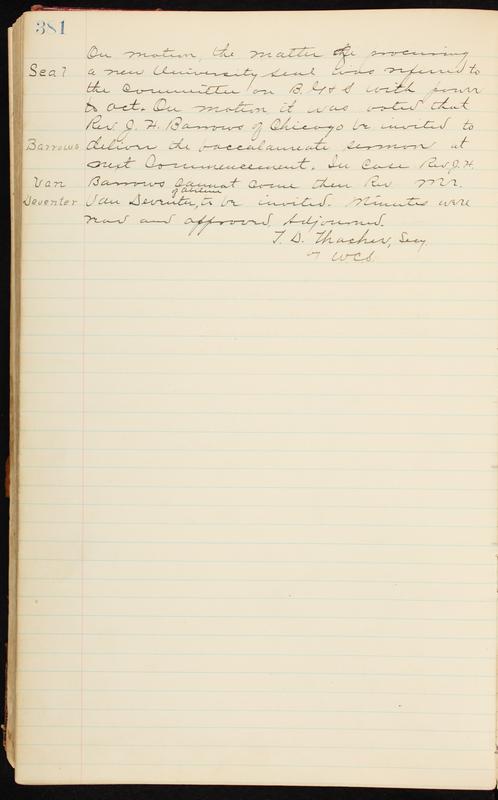 381
On motion, the matter of procuring
Seal a new University seal was referred to
the Committee on B. G & S with power
to act. On motion it was voted that
Rev J. H. Barrows of Chicago be invited to
Barrows deliver the baccalaureate sermon at
next Commencement. In case Rev. J. H.
Van Barrows cannot come then Rev Mr.
Deventer Van Deventer, of Abilene to be invited. Minutes were
read and approved. Adjourned.
T. D. Thacher, Secy
WCS